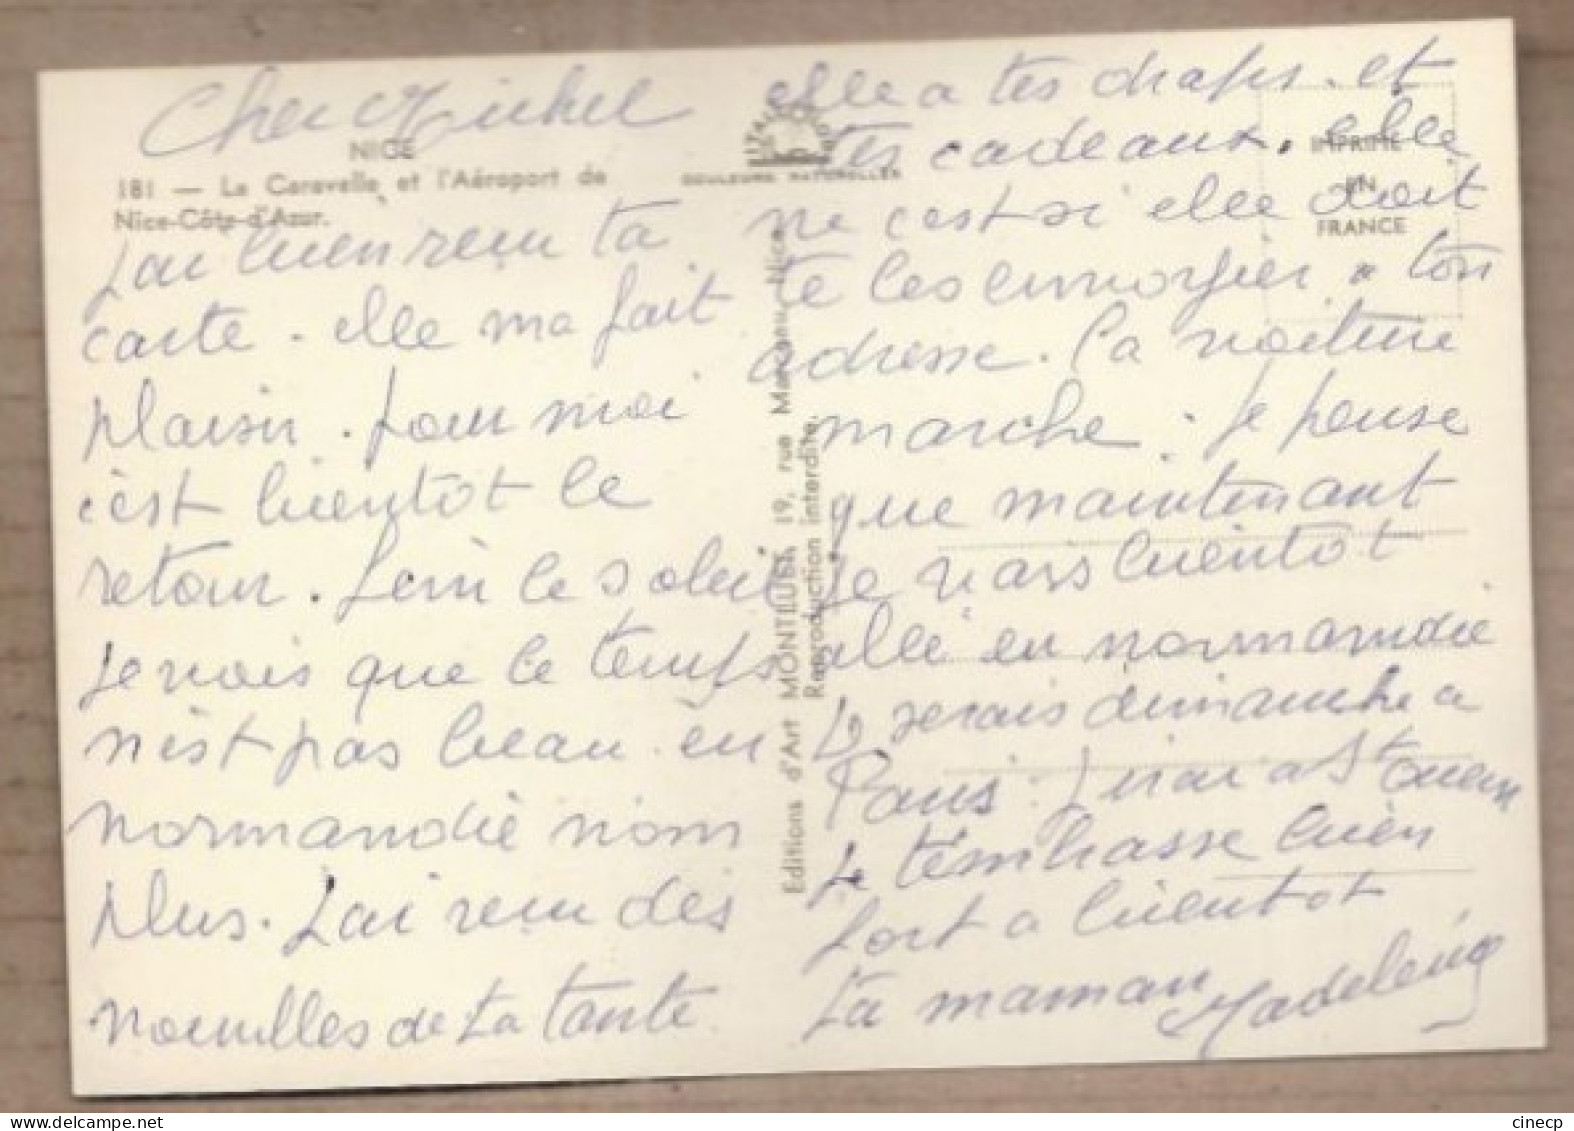 Cher Michel
NICE
181 — La Caravelle et l'Aéroport de
Nice-Côte-d'Azur.
J'ai bien reçu ta
carte. elle ma fait
plaisir. pour moi
c'est bientôt le
retour. fini le soleil
je vois que le temps
n'est pas beau en
normandie non
plus. J'ai reçu des
nouvelles de ta tante
COULEURS NATURELLES
Editions d'Art MONTLUET, 19, rue Nice
Reproduction interdite.
IMPRIMÉ
EN
FRANCE
elle a tes draps. et
tes cadeaux. elle
ne c'est si elle doit
te les envoyier a ton
adresse. Ca voiture
marche. je pense
que maintenant
je vais bientot
allé en normandie
Je serais dimanche a
Paris. J'irai a St Ouen
Je t'embrasse bien
fort a bientot
Ta maman Madeleine
cinecp